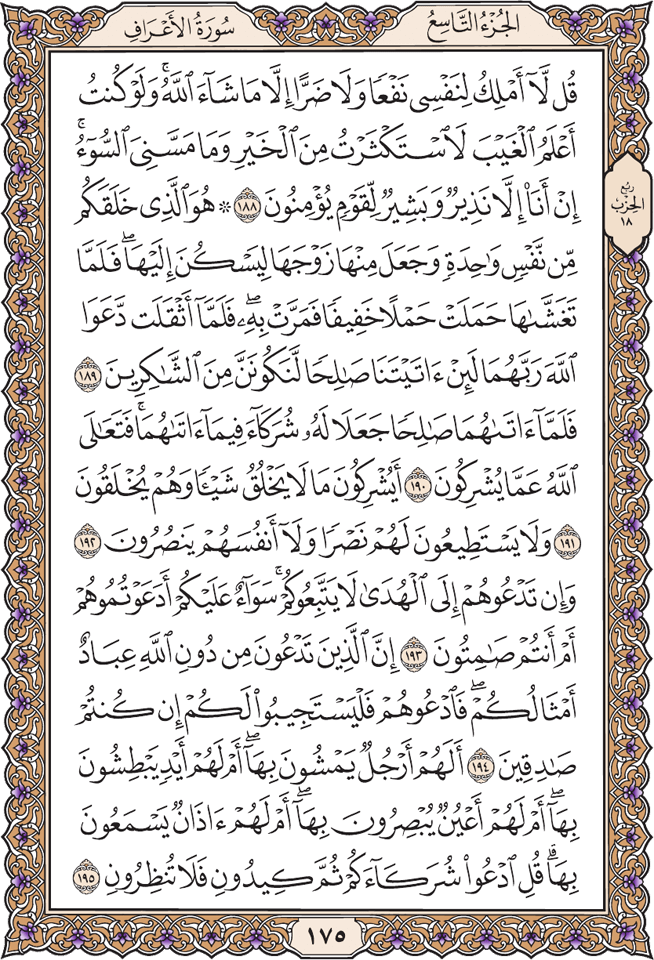 الجُزْءُ التَّاسِعُ
سُورَةُ الأَعْرَافِ
قُل لَّآ أَمْلِكُ لِنَفْسِى نَفْعًا وَلَا ضَرًّا إِلَّا مَا شَآءَ ٱللَّهُۚ وَلَوْ كُنتُ
أَعْلَمُ ٱلْغَيْبَ لَٱسْتَكْثَرْتُ مِنَ ٱلْخَيْرِ وَمَا مَسَّنِىَ ٱلسُّوٓءُۚ
إِنْ أَنَا۠ إِلَّا نَذِيرٌ وَبَشِيرٌ لِّقَوْمٍ يُؤْمِنُونَ ١٨٨ ۞ هُوَ ٱلَّذِى خَلَقَكُم
مِّن نَّفْسٍ وَٰحِدَةٍ وَجَعَلَ مِنْهَا زَوْجَهَا لِيَسْكُنَ إِلَيْهَاۖ فَلَمَّا
تَغَشَّىٰهَا حَمَلَتْ حَمْلًا خَفِيفًا فَمَرَّتْ بِهِۦۖ فَلَمَّآ أَثْقَلَت دَّعَوَا
ٱللَّهَ رَبَّهُمَا لَئِنْ ءَاتَيْتَنَا صَٰلِحًا لَّنَكُونَنَّ مِنَ ٱلشَّٰكِرِينَ ١٨٩
فَلَمَّآ ءَاتَىٰهُمَا صَٰلِحًا جَعَلَا لَهُۥ شُرَكَآءَ فِيمَآ ءَاتَىٰهُمَاۚ فَتَعَٰلَى
ٱللَّهُ عَمَّا يُشْرِكُونَ ١٩٠ أَيُشْرِكُونَ مَا لَا يَخْلُقُ شَيْـًٔا وَهُمْ يُخْلَقُونَ
١٩١ وَلَا يَسْتَطِيعُونَ لَهُمْ نَصْرًا وَلَآ أَنفُسَهُمْ يَنصُرُونَ ١٩٢
وَإِن تَدْعُوهُمْ إِلَى ٱلْهُدَىٰ لَا يَتَّبِعُوكُمْۚ سَوَآءٌ عَلَيْكُمْ أَدَعَوْتُمُوهُمْ
أَمْ أَنتُمْ صَٰمِتُونَ ١٩٣ إِنَّ ٱلَّذِينَ تَدْعُونَ مِن دُونِ ٱللَّهِ عِبَادٌ
أَمْثَالُكُمْۖ فَٱدْعُوهُمْ فَلْيَسْتَجِيبُوا۟ لَكُمْ إِن كُنتُمْ
صَٰدِقِينَ ١٩٤ أَلَهُمْ أَرْجُلٌ يَمْشُونَ بِهَآۖ أَمْ لَهُمْ أَيْدٍ يَبْطِشُونَ
بِهَآۖ أَمْ لَهُمْ أَعْيُنٌ يُبْصِرُونَ بِهَآۖ أَمْ لَهُمْ ءَاذَانٌ يَسْمَعُونَ
بِهَاۗ قُلِ ٱدْعُوا۟ شُرَكَآءَكُمْ ثُمَّ كِيدُونِ فَلَا تُنظِرُونِ ١٩٥
رُبع
الحِزْب
١٨
١٧٥